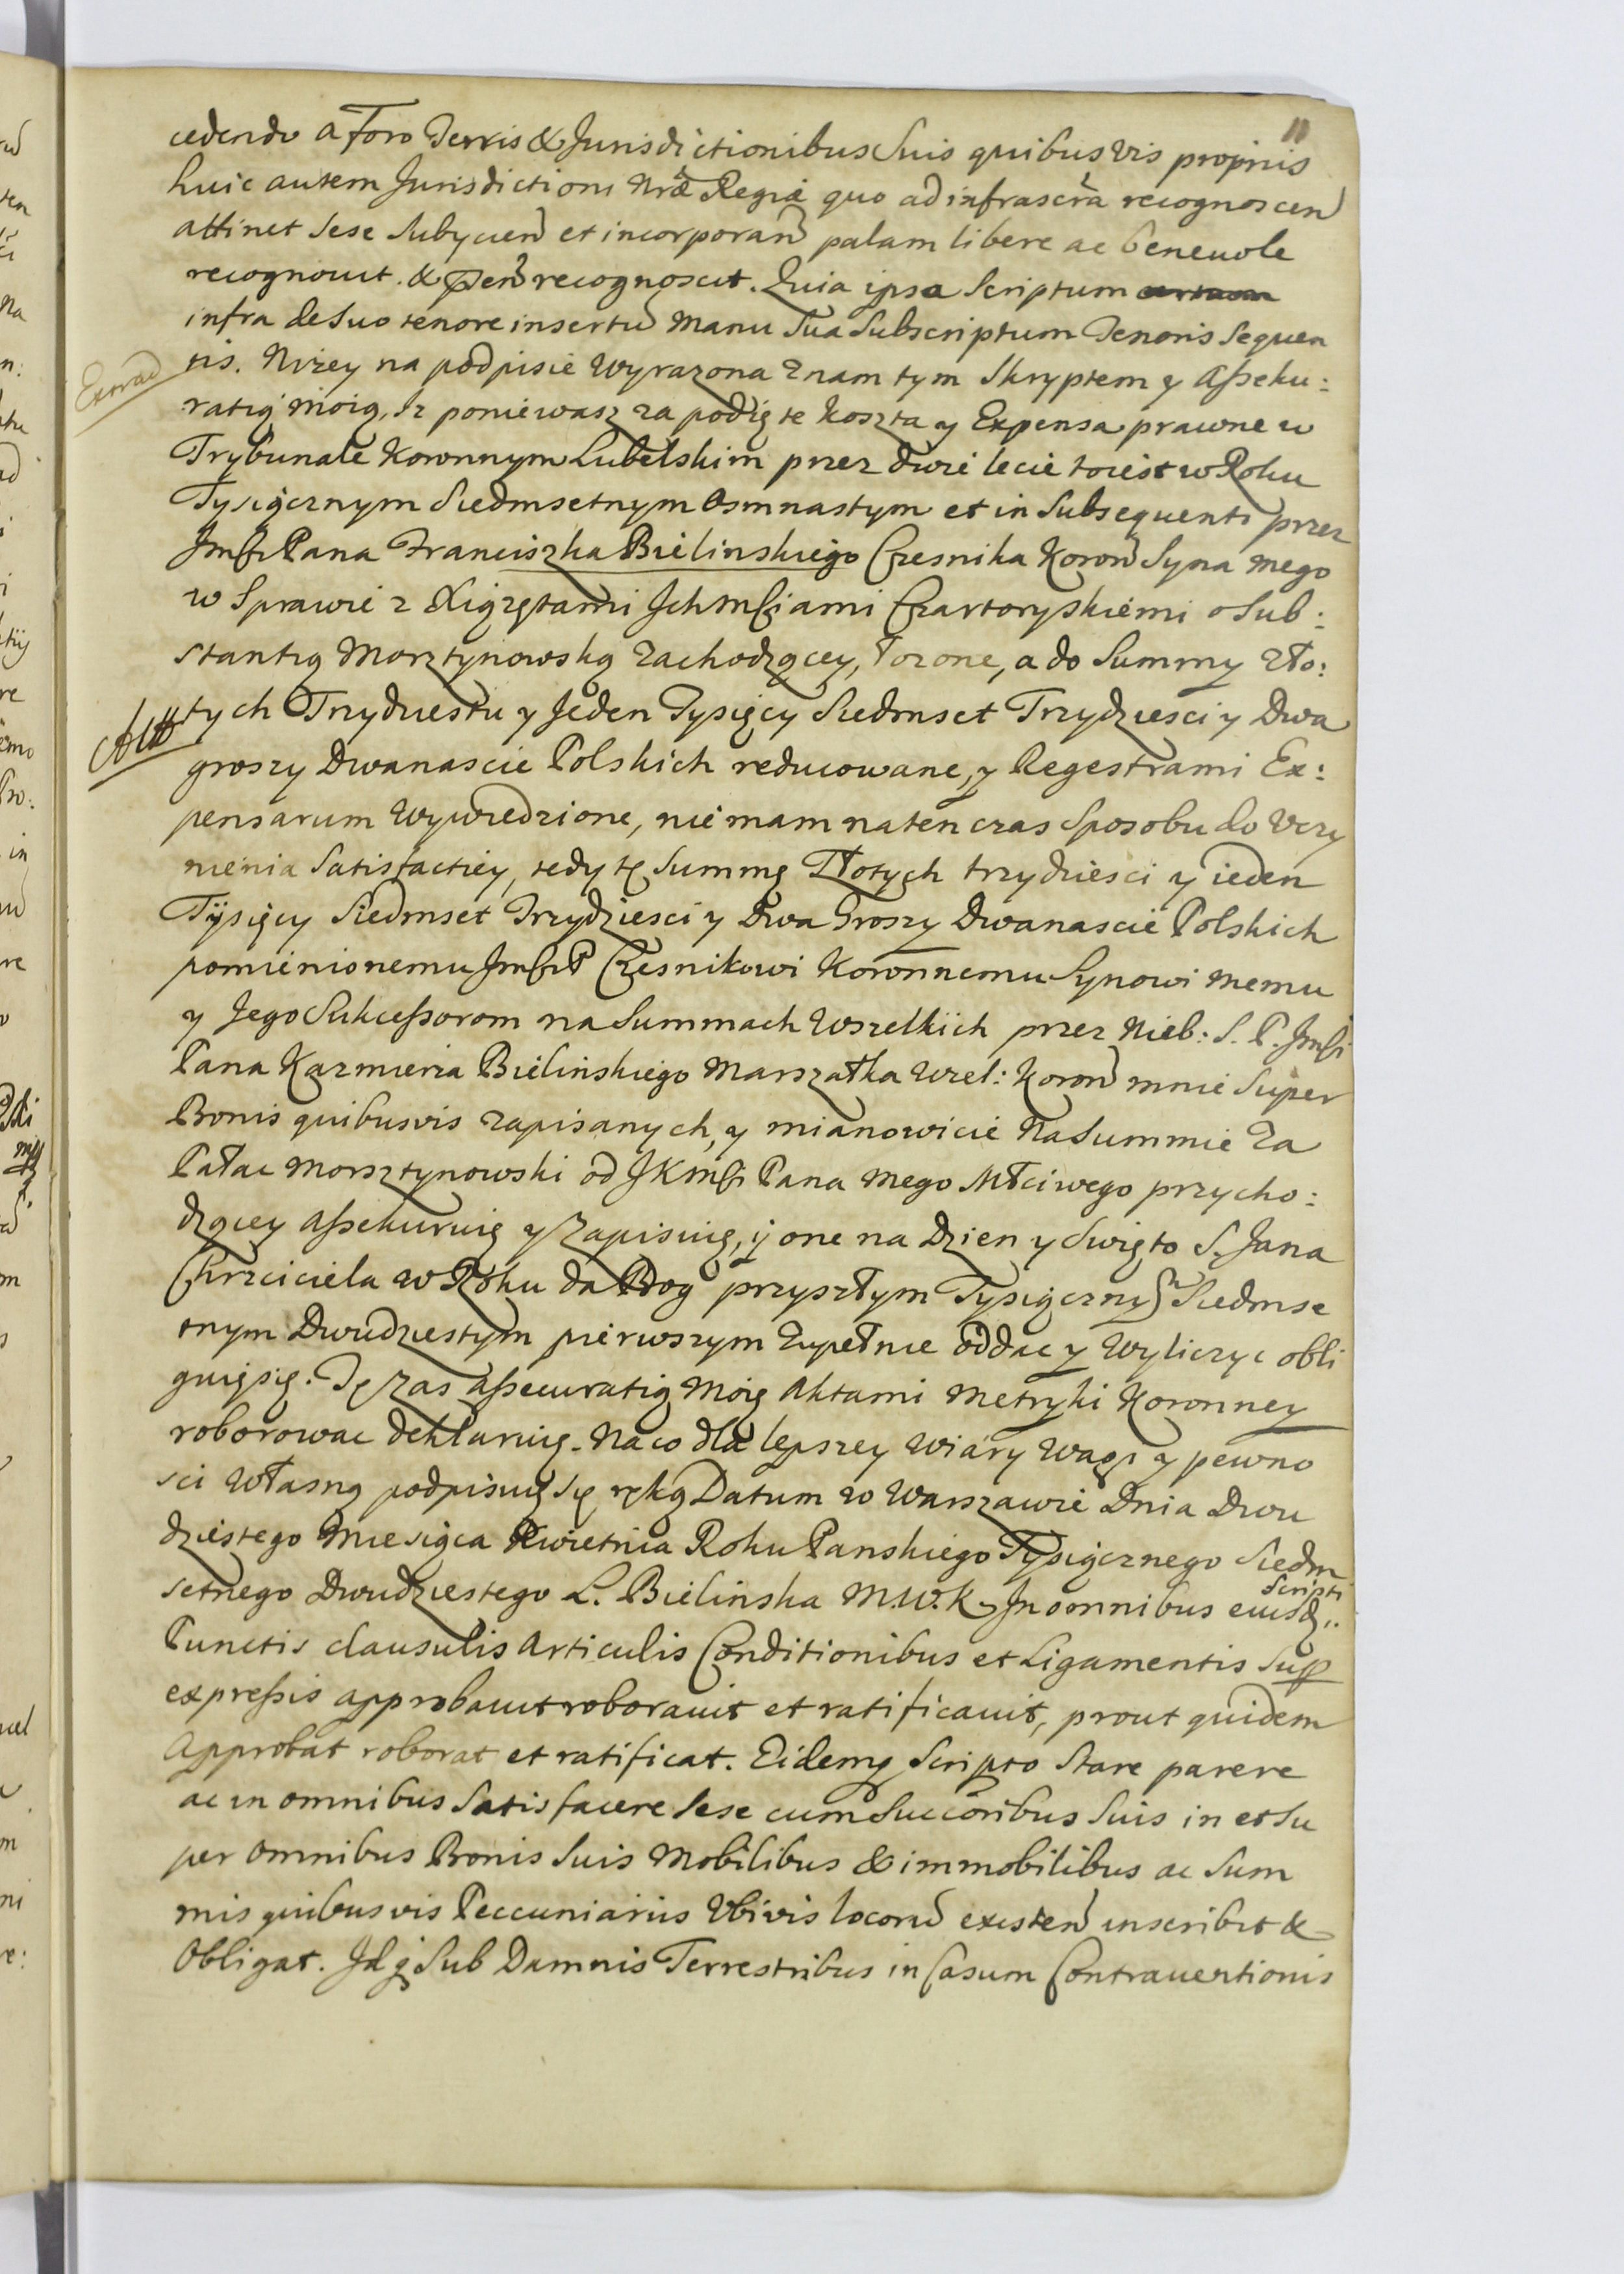 11
cedendo a Foro Terris & Jurisdictionibus Suis quibusvis propriis
huic autem Jurisdictioni Nrae Regiae quo ad infrascra recognoscen
attinet sese Subycien et incorporan palam libere ac benevole
recognouit. & pen recognoscit. Quia ipsa Scriptum
infra de Suo tenore insertu manu Sua Subscriptum Tenoris Sequen
tis. Niżey na podpisie Wyrazona Znam tym Skryptem y Asseku:
ratią moią, Iz poniewasz za podięte koszta y Expensa prawne w
Trybunale Koronnym Lubelskim przez dwie lecie toiest w Roku
Tysiącznym Siedmsetnym Osmnastym et in Subsequenti przez
Jmści Pana Franciszka Bielinskiego Czesnika Koron Syna mego
w Sprawie z Xiążętami Ichmściami Czartoryskiemi o Sub:
stantią Morztynowską Zachodzącey, łożone, a do Summy Zło:
Att
tych Trzydziestu y Jeden Tysięcy Siedmset Trzydziesci y Dwa
groszy Dwanascie Polskich reducowane, y Regestrami Ex:
pensarum Wywiedzione, nie mam naten czas Sposobu do Vczy
nienia Satisfactiey, tedy tę Summę Złotych trzydziesci y ieden
Tysięcy Siedmset Trzydziesci y Dwa Groszy Dwanascie Polskich
pomienionemu Jmści P Czesnikowi Koronnemu Synowi memu
y Jego Sukcessorom na Summach Wszelkiich przez Nieb: S. P. Jmści
Pana Kazmierza Bielinskiego Marszałka Wiel: Koron mnie Super
Bonis quibusvis zapisanych, y mianowicie Na Summie Za
Pałac Morsztynowski od JKMści Pana mego Młciwego przycho:
dzącey assekuruię y Zapisuię, ij one na Dzien y Swięto S. Jana
Chrzciciela w Roku da Bog przyszłym Tysiączny Siedmse
tnym Dwudziestym pierwszym Zupełnie oddac y Wyliczyc obli
guięsię. Tę Zas assecuratią Moię Aktami Metryki Koronney
roborowac deklaruię. Na co dla lepszey Wiary Wagi y pewno
sci Własną podpisuię Się ręką Datum w Warszawie Dnia Dwu
dziestego Miesiąca Kwietnia Roku Panskiego Tysiącznego Siedm
setnego Dwudziestego L. Bielinska M.W.K. In omnibus eiusd Scripti
Punctis clausulis Articulis Conditionibus et Ligamentis Sup
expressis approbauit roborauit et ratificauit, prout quidem
Approbat roborat et ratificat. Eidemq Scripto Stare parere
ac in omnibus Satisfacere Sese cum Succoribus Suis in et Su
per omnibus Bonis Suis Mobilibus & immobilibus ac Sum
mis quibusvis Peccuniariis Vbivis locoru existen inscribit &
Obligat. Idq Sub Damnis Terrestribus in Casum Contrauentionis